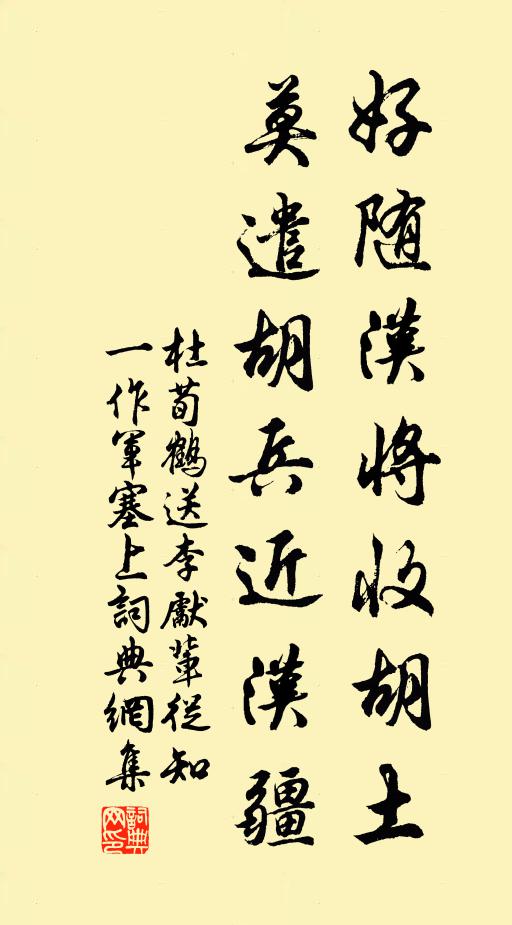 好随漢將收胡土
莫遣胡兵近漢疆
杜荀鶴送李獻輩從知
一作軍塞上詞典網集
詞典
网印